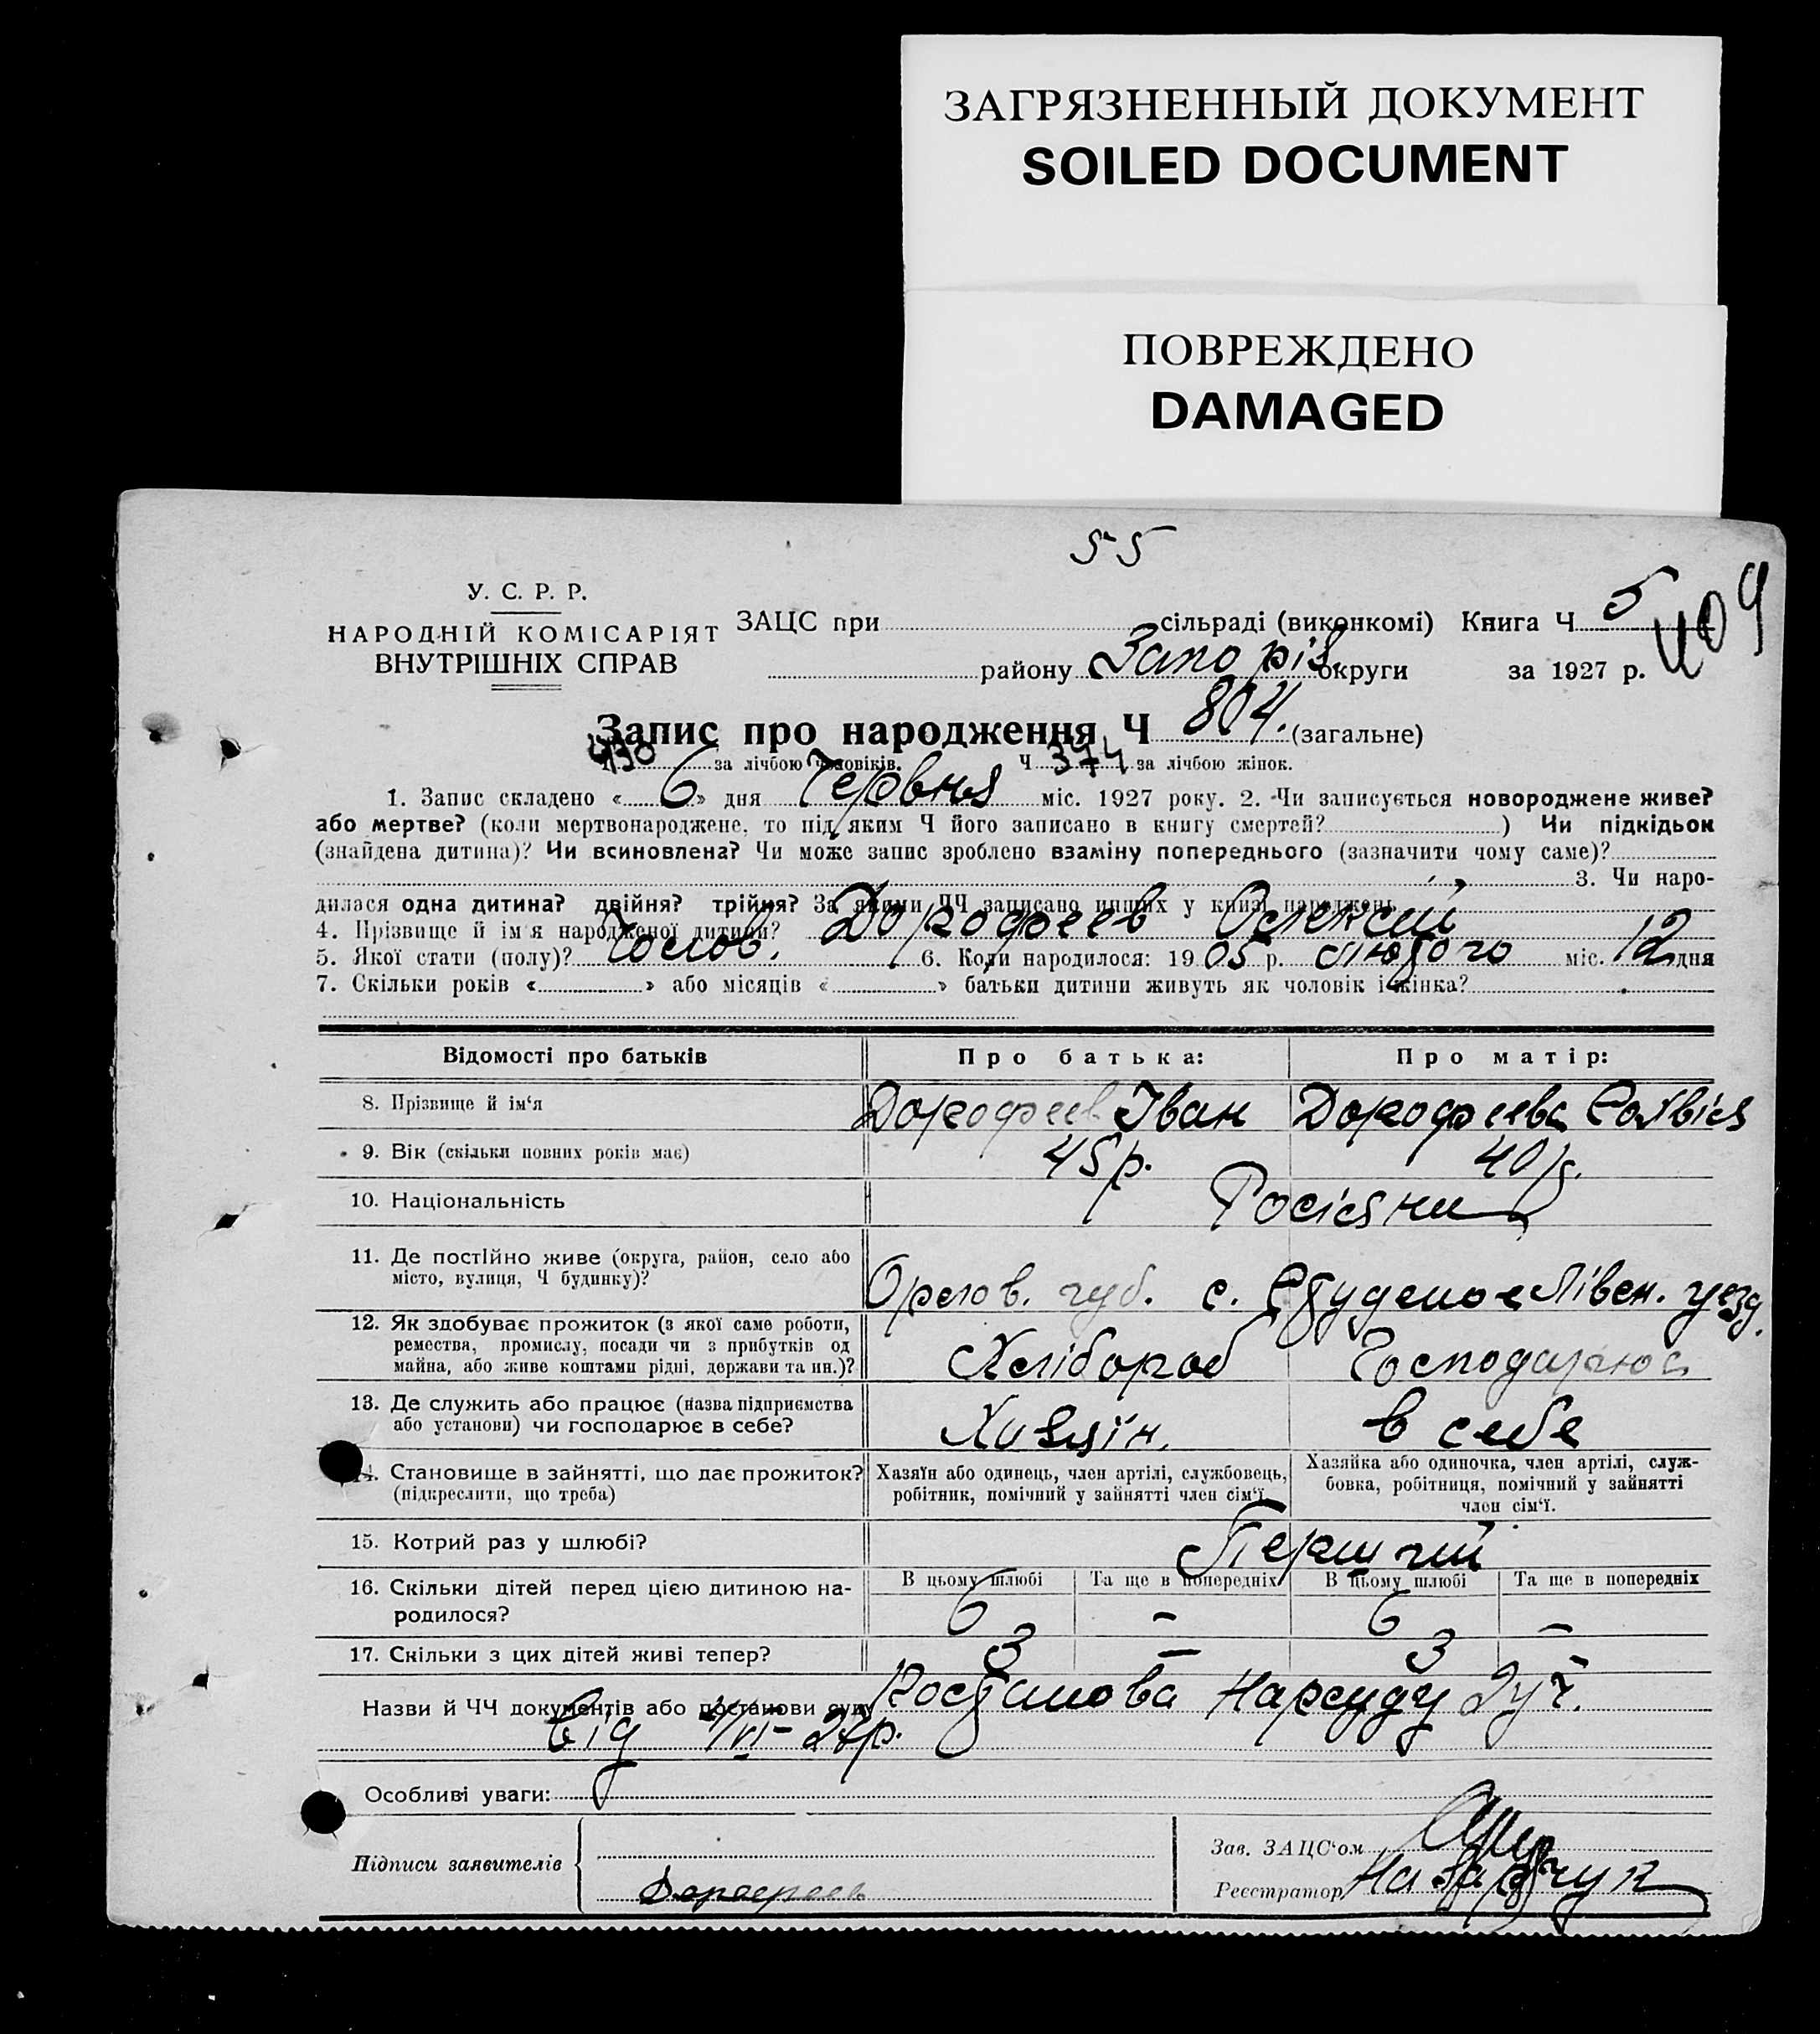 ЗАГРЯЗНЕННЫЙ ДОКУМЕНТ
SOILED DOCUMENT
ПОВРЕЖДЕНО
DAMAGED
55
У. С. Р. Р.
НАРОДНІЙ КОМІСАРІЯТ
ВНУТРІШНІХ СПРАВ
ЗАЦС при сільраді (виконкомі) Книга Ч 5
409
району Запоріз. округи за 1927 р.
Запис про народження Ч 804. (загальне)
430 за лічбою чоловіків. Ч 374 за лічбою жінок.
1. Запис складено « 6 » дня Червня міс. 1927 року. 2. Чи записується новороджене живе?
або мертве? (коли мертвонароджене, то під яким Ч його записано в книгу смертей? ) Чи підкідьок
(знайдена дитина)? Чи всиновлена? Чи може запис зроблено взаміну попереднього (зазначити чому саме)?
3. Чи наро-
дилася одна дитина? двійня? трійня? За якими ЧЧ записано инших у книзі народжень
4. Прізвище й ім'я народженої дитини? Дорофеев Олексій
5. Якої стати (полу)? Чолов. 6. Коли народилося: 1905 р. лютого міс. 12 дня
7. Скільки років « » або місяців « » батьки дитини живуть як чоловік і жінка?
Відомості про батьків Про батька: Про матір:
8. Прізвище й ім'я Дорофеев Іван Дорофеева
9. Вік (скільки повних років має) 45 р. 40 р.
10. Національність Росіяни
11. Де постійно живе (округа, район, село або
місто, вулиця, Ч будинку)? Орлов. губ. с. Лівен. уезд.
12. Як здобуває прожиток (з якої саме роботи,
ремества, промислу, посади чи з прибутків од
майна, або живе коштами рідні, держави та ин.)? Хлібороб
13. Де служить або працює (назва підприємства
або установи) чи господарює в себе? в себе
14. Становище в зайнятті, що дає прожиток?
(підкреслити, що треба)
Хазяїн або одинець, член артілі, службовець,
робітник, помічний у зайнятті член сім'ї.
Хазяйка або одиночка, член артілі, служ-
бовка, робітниця, помічний у зайнятті
член сім'ї.
15. Котрий раз у шлюбі? Перший
16. Скільки дітей перед цією дитиною на-
родилося?
В цьому шлюбі Та ще в попередніх В цьому шлюбі Та ще в попередніх
6 – 6 –
17. Скільки з цих дітей живі тепер? 3 – 3 –
Назви й ЧЧ документів або постанови суду Постанова Нарсуду 2 уч.
Від 4/VI-27р.
Особливі уваги:
Підписи заявителів Дорофеев
Зав. ЗАЦС'ом
Реєстратор Назарчук